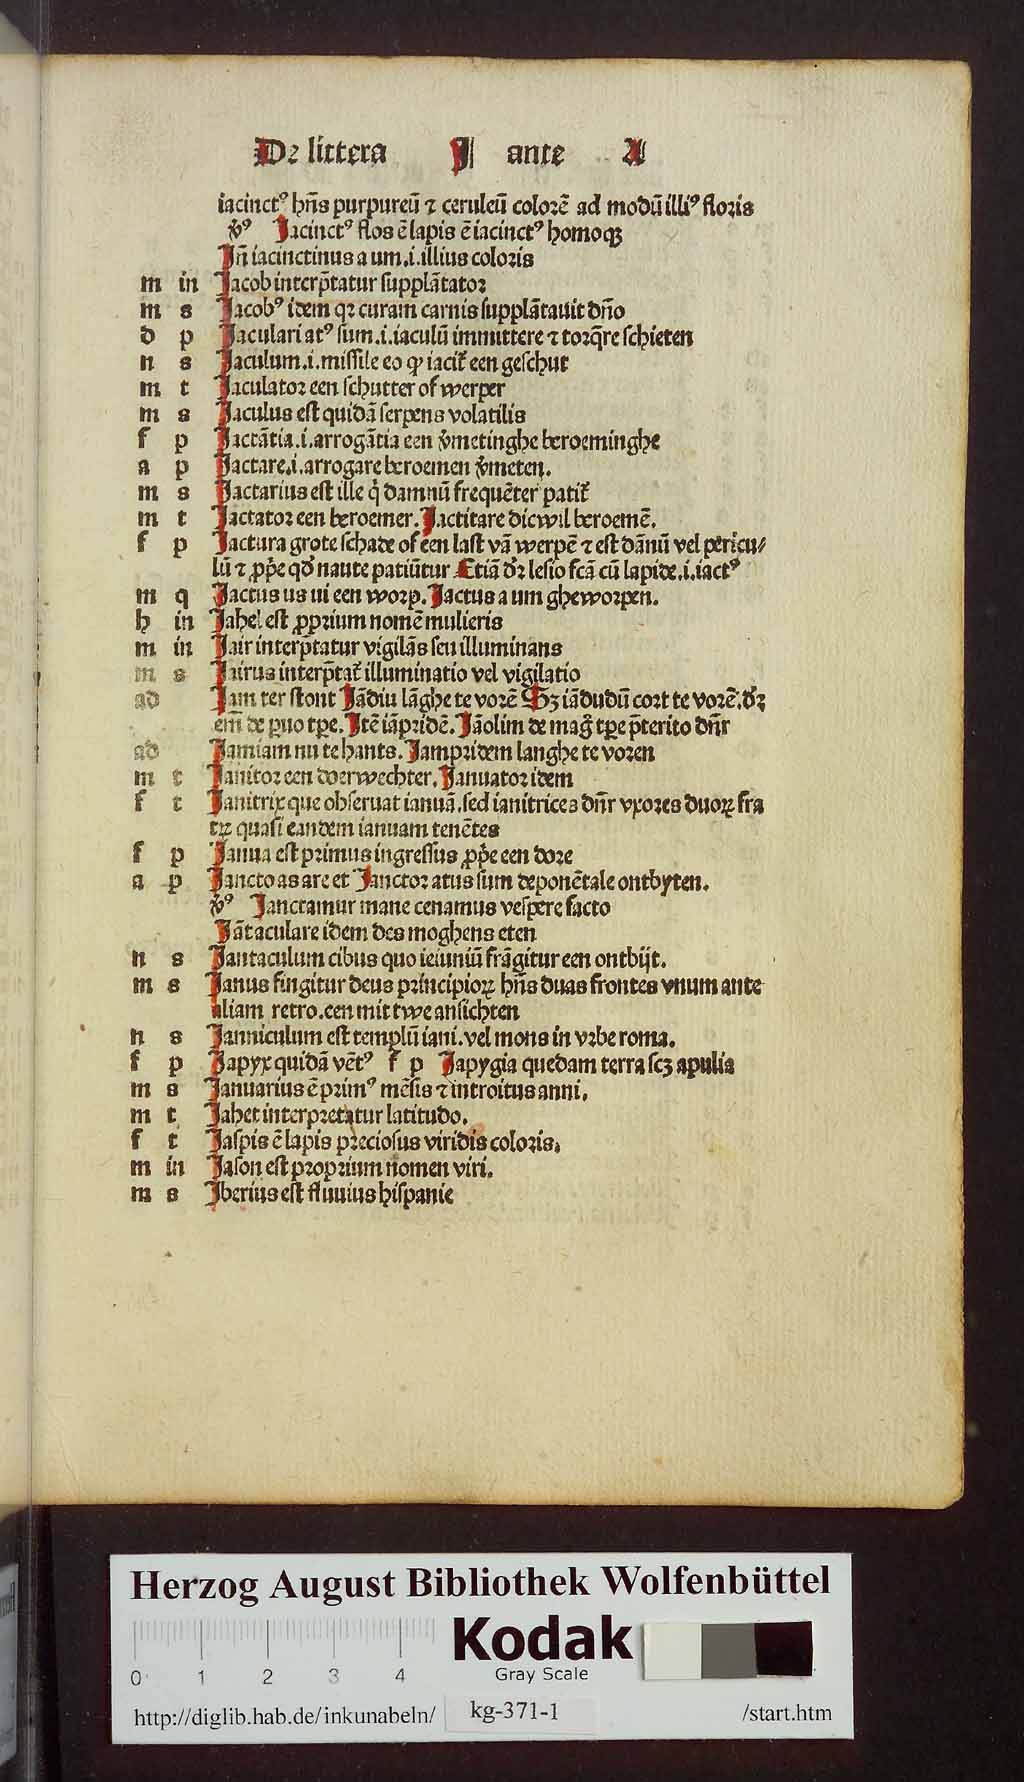 De littera J ante A
iacinctꝰ hn̄s purpureū ⁊ ceruleū colorē ad modū illiꝰ floris
v̄ꝰ Jacinctꝰ flos ē lapis ē iacinctꝰ homoqꝫ
Jn̄ iacinctinus a um .i. illius coloris
m in Jacob interp̄tatur supplātator
m s Jacobꝰ idem qꝛ curam carnis supplātauit dn̄o
d p Jaculari atꝰ sum .i. iaculū immittere ⁊ torq̄re schieten
n s Jaculum .i. missile eo ꝙ iacit̄ een geschut
m t Jaculator een schutter of werper
m s Jaculus est quidā serpens volatilis
f p Jactātia .i. arrogātia een v̄metinghe beroeminghe
a p Jactare .i. arrogare beroemen v̄meten.
m s Jactarius est ille q̇ damnū frequēter patit̄
m t Jactator een beroemer. Jactitare dicwil beroemē.
f p Jactura grote schade of een last vā werpē ⁊ est dānū vel pericu⸗
lū ⁊ ꝓpe qd̓ naute patiūtur Etiā dꝛ̄ lesio fcā cū lapide .i. iactꝰ
m q Jactus us ui een worp. Jactus a um gheworpen.
h in Jahel est ꝓprium nomē mulieris
m in Jair interptatur vigilās seu illuminans
m s Jairus interp̄tat̄ illuminatio vel vigilatio
ad Jam ter stont Jādiu lāghe te vorē Sꝫ iādudū cort te vorē. dꝛ̄
em̄ de ꝑuo tꝑe. Jtē iāpridē. Jāolim de maḡ tꝑe p̄terito dn̄r
ad Jamiam nu te hants. Jampridem langhe te voren
m t Janitor een doerwechter. Januator idem
f t Janitrix que obseruat ianuā. sed ianitrices dn̄r vxores duoꝝ fra
trꝫ quasi eandem ianuam tenētes
f p Janua est primus ingressus ꝓpe een dore
a p Jancto as are et Janctor atus sum deponētale ontbyten.
v̄ꝰ Janctamur mane cenamus vespere facto
Jāt aculare idem des moghens eten
n s Jantaculum cibus quo ieiuniū frāgitur een ontbijt.
m s Janus fingitur deus principioꝝ hn̄s duas frontes vnum ante
aliam retro. een mit twe ansichten
n s Janniculum est templū iani. vel mons in vrbe roma.
f p Japyx quidā vētꝰ f p Japygia quedam terra scꝫ apulia
m s Januarius ē primꝰ mēsis ⁊ introitus anni.
m t Jahet interpretatur latitudo.
f t Jaspis ē lapis preciosus viridis coloris.
m in Jason est proprium nomen viri.
m s Jberius est fluuius hispanie
Herzog August Bibliothek Wolfenbüttel
Kodak
Gray Scale
0 1 2 3 4
http://diglib.hab.de/inkunabeln/ kg-371-1 /start.htm